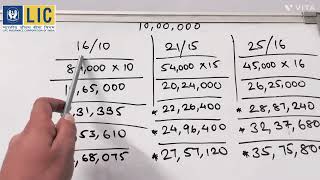 LIC
भारतीय जीवन बीमा निगम
LIFE INSURANCE CORPORATION OF INDIA
VITA
10,00,000
16/10 21/15 25/16
,000 × 10 54,000 × 15 45,000 × 16
,65,000 20,24,000 26,25,000
,31,395 *22,26,400 *28,87,240
53,610 *24,96,400 *32,37,680
,68,075 *27,57,120 *35,75,80